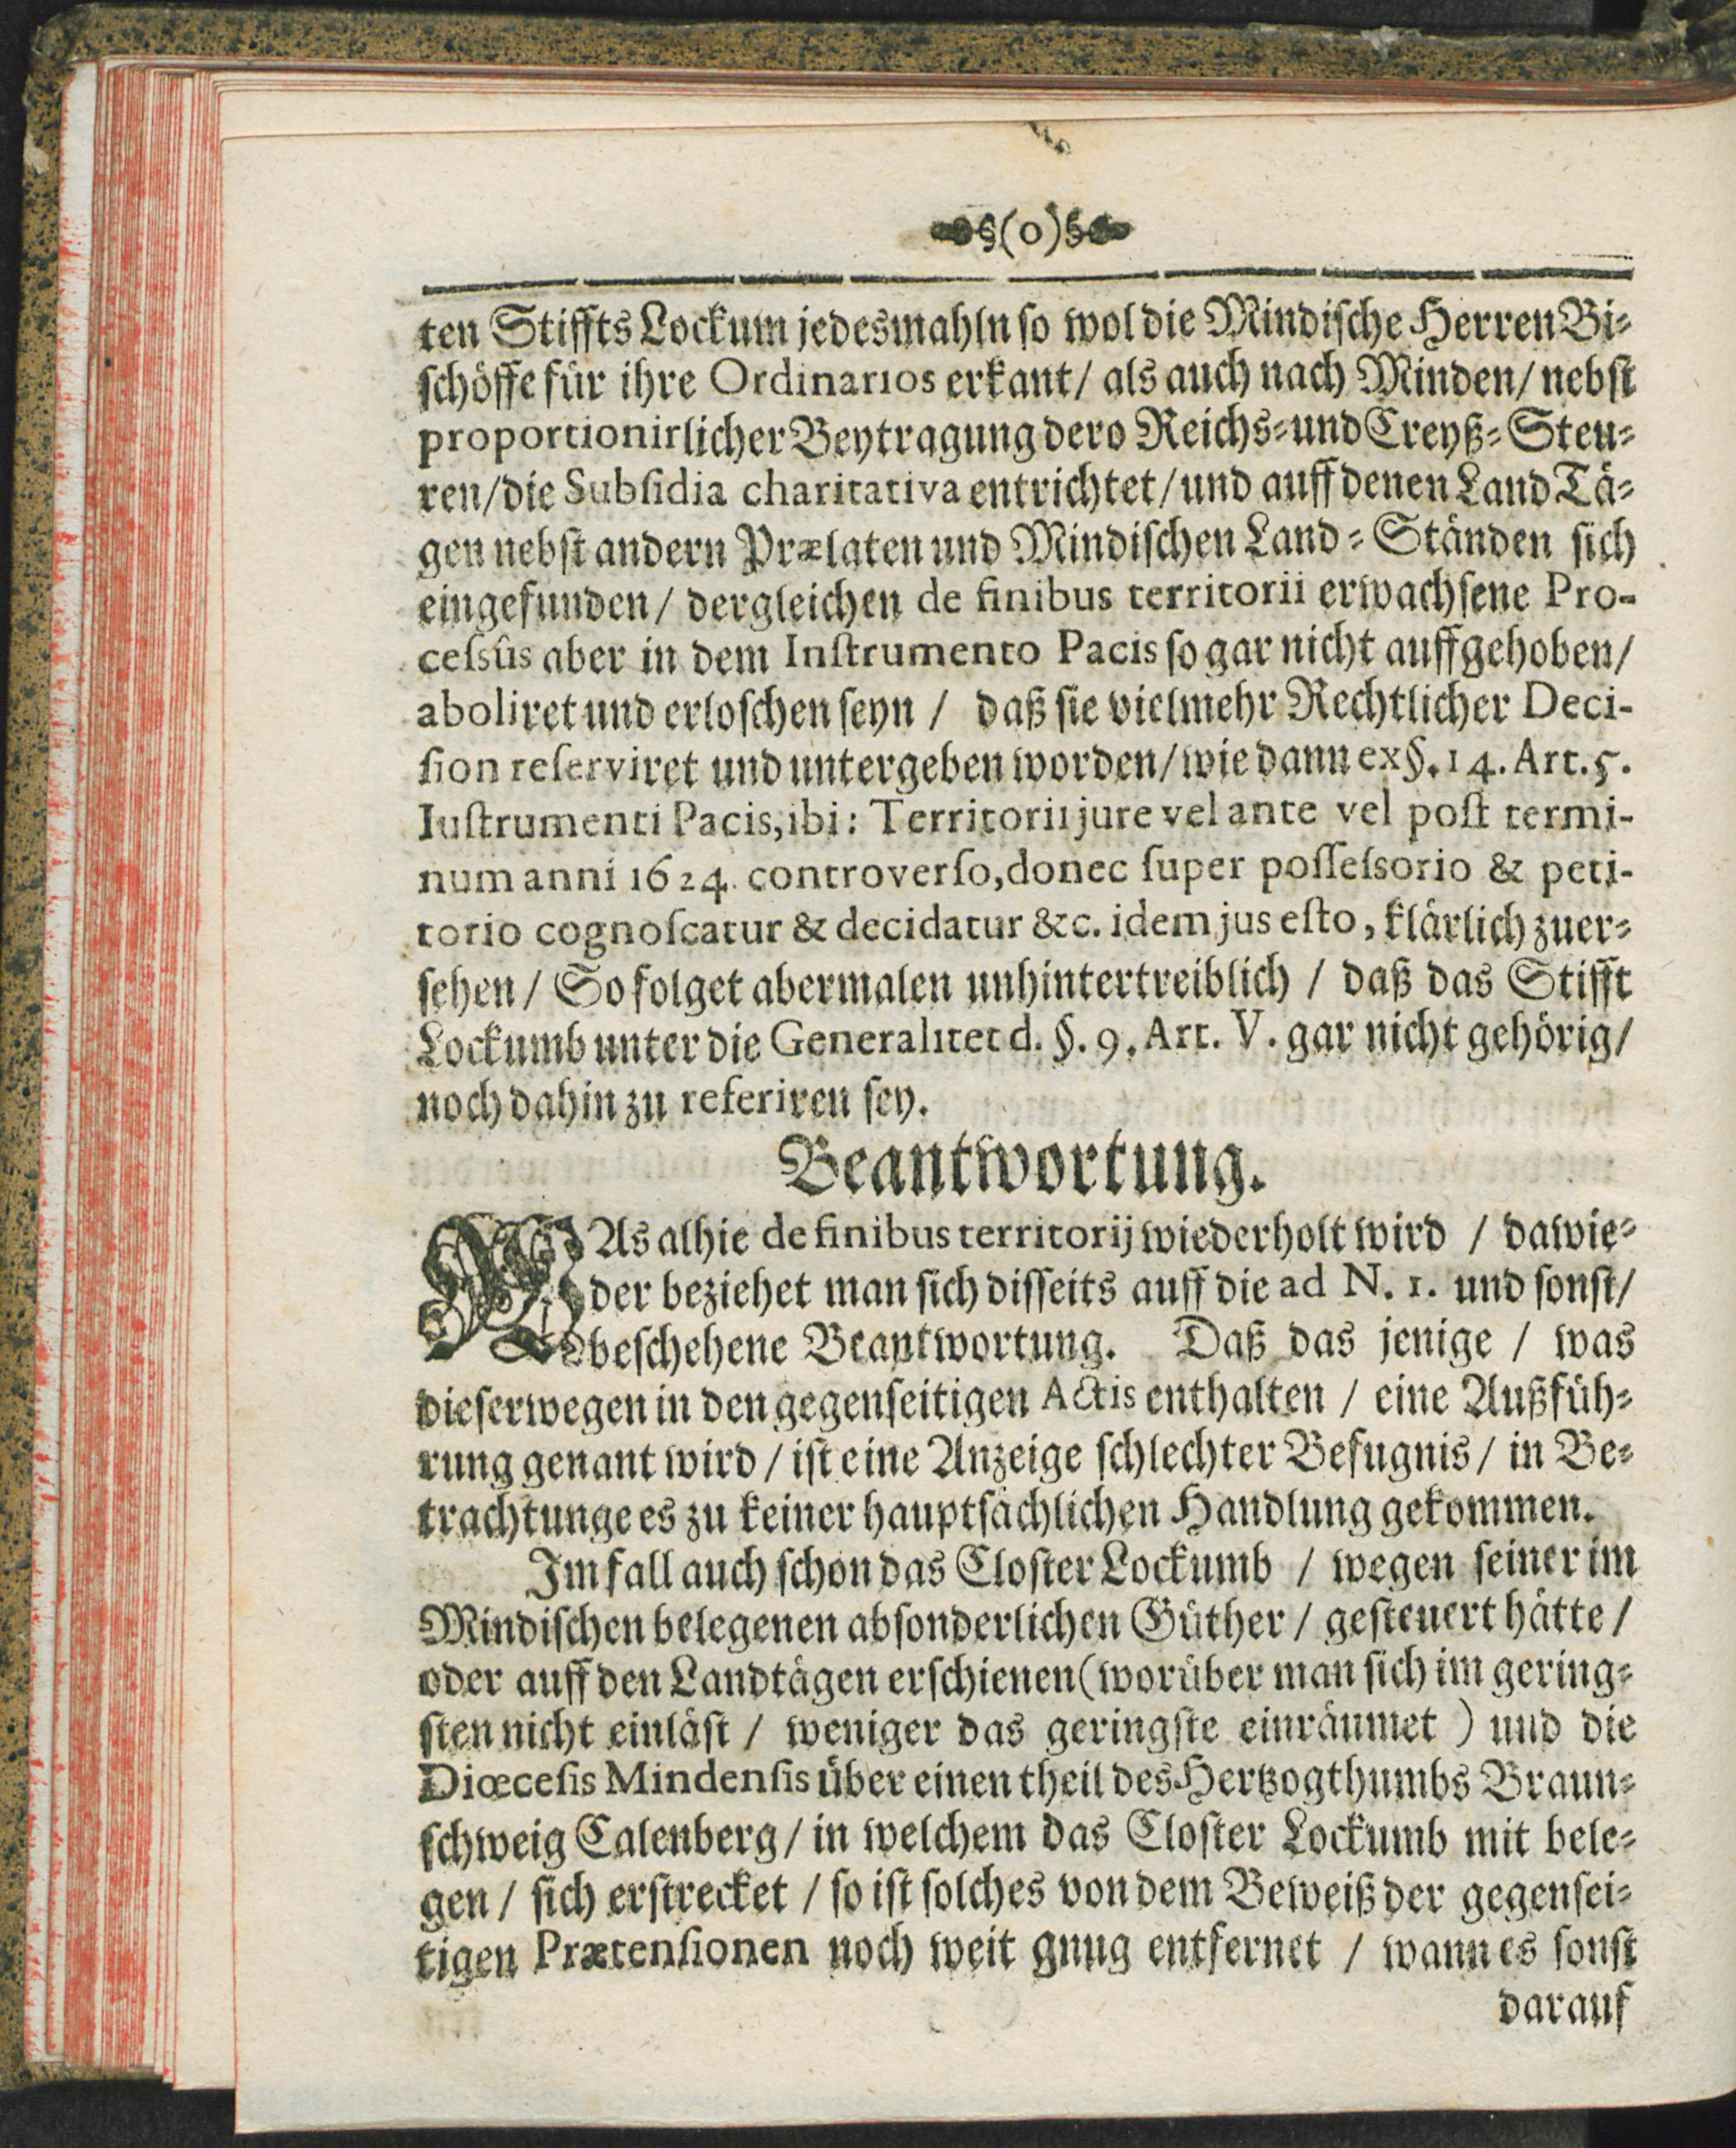 §(o)§
ten Stiffts Lockum jedesmahln so wol die Mindische Herren Bi-
schöffe für ihre Ordinarios erkant/ als auch nach Minden/ nebst
proportionirlicher Beytragung dero Reichs- und Creyß- Steu-
ren/ die Subsidia charitativa entrichtet/ und auff denen Land Tä-
gen nebst andern Prælaten und Mindischen Land- Ständen sich
eingefunden/ dergleichen de finibus territorii erwachsene Pro-
cessûs aber in dem Instrumento Pacis so gar nicht auffgehoben/
aboliret und erloschen seyn / daß sie vielmehr Rechtlicher Deci-
sion reserviret und untergeben worden/ wie dann ex §. 14. Art. 5.
Iustrumenti Pacis, ibi: Territorii jure vel ante vel post termi-
num anni 1624. controverso, donec super possessorio & peti-
torio cognoscatur & decidatur &c. idem jus esto, klärlich zuer-
sehen / So folget abermalen unhintertreiblich / daß das Stifft
Lockumb unter die Generalitet d. §. 9. Art. V. gar nicht gehörig/
noch dahin zu referiren sey.
Beantwortung.
WAs alhie de finibus territorij wiederholt wird / dawie-
der beziehet man sich disseits auff die ad N. 1. und sonst/
beschehene Beantwortung. Daß das jenige / was
dieserwegen in den gegenseitigen Actis enthalten / eine Außfüh-
rung genant wird / ist eine Anzeige schlechter Befugnis / in Be-
trachtunge es zu keiner hauptsächlichen Handlung gekommen.
Im fall auch schon das Closter Lockumb / wegen seiner im
Mindischen belegenen absonderlichen Güther / gesteuert hätte /
oder auff den Landtägen erschienen (worüber man sich im gering-
sten nicht einläst / weniger das geringste einräumet ) und die
Diœcesis Mindensis über einen theil des Hertzogthumbs Braun-
schweig Calenberg / in welchem das Closter Lockumb mit bele-
gen / sich erstrecket / so ist solches von dem Beweiß der gegensei-
tigen Prætensionen noch weit gnug entfernet / wann es sonst
darauf